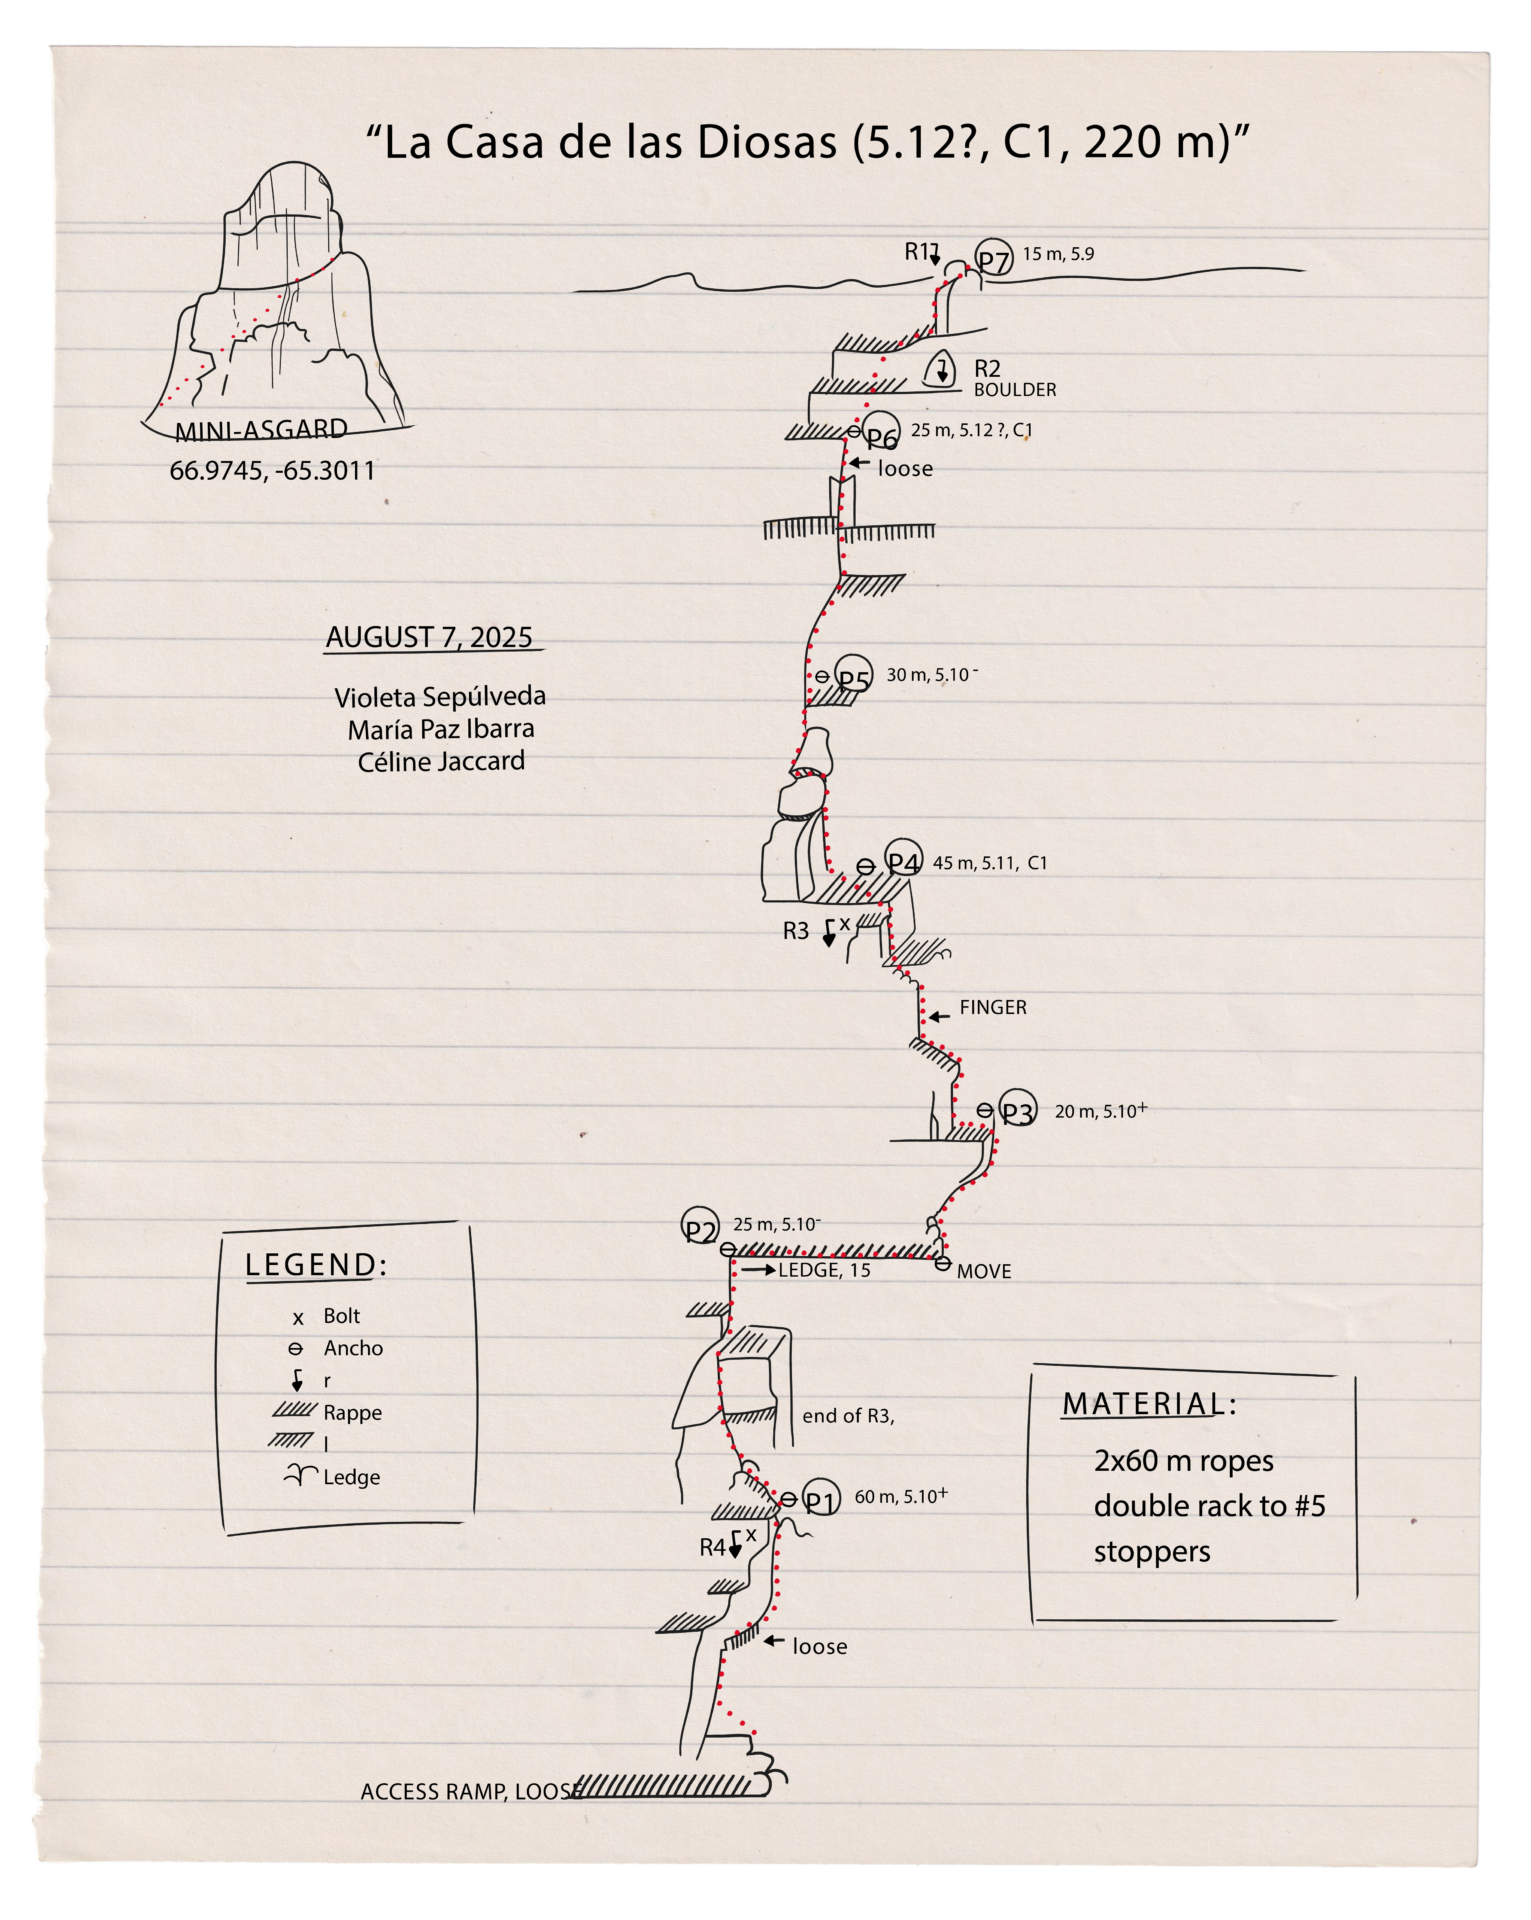 “La Casa de las Diosas (5.12?, C1, 220 m)”
MINI-ASGARD
66.9745, -65.3011
R1
P7 15 m, 5.9
R2
BOULDER
P6 25 m, 5.12 ?, C1
loose
AUGUST 7, 2025
Violeta Sepúlveda
María Paz Ibarra
Céline Jaccard
P5 30 m, 5.10⁻
P4 45 m, 5.11, C1
R3 x
FINGER
P3 20 m, 5.10⁺
P2 25 m, 5.10⁻
LEDGE, 15
MOVE
end of R3,
P1 60 m, 5.10⁺
R4 x
loose
ACCESS RAMP, LOOSE
LEGEND:
x Bolt
Ancho
r
Rappe
l
Ledge
MATERIAL:
2x60 m ropes
double rack to #5
stoppers